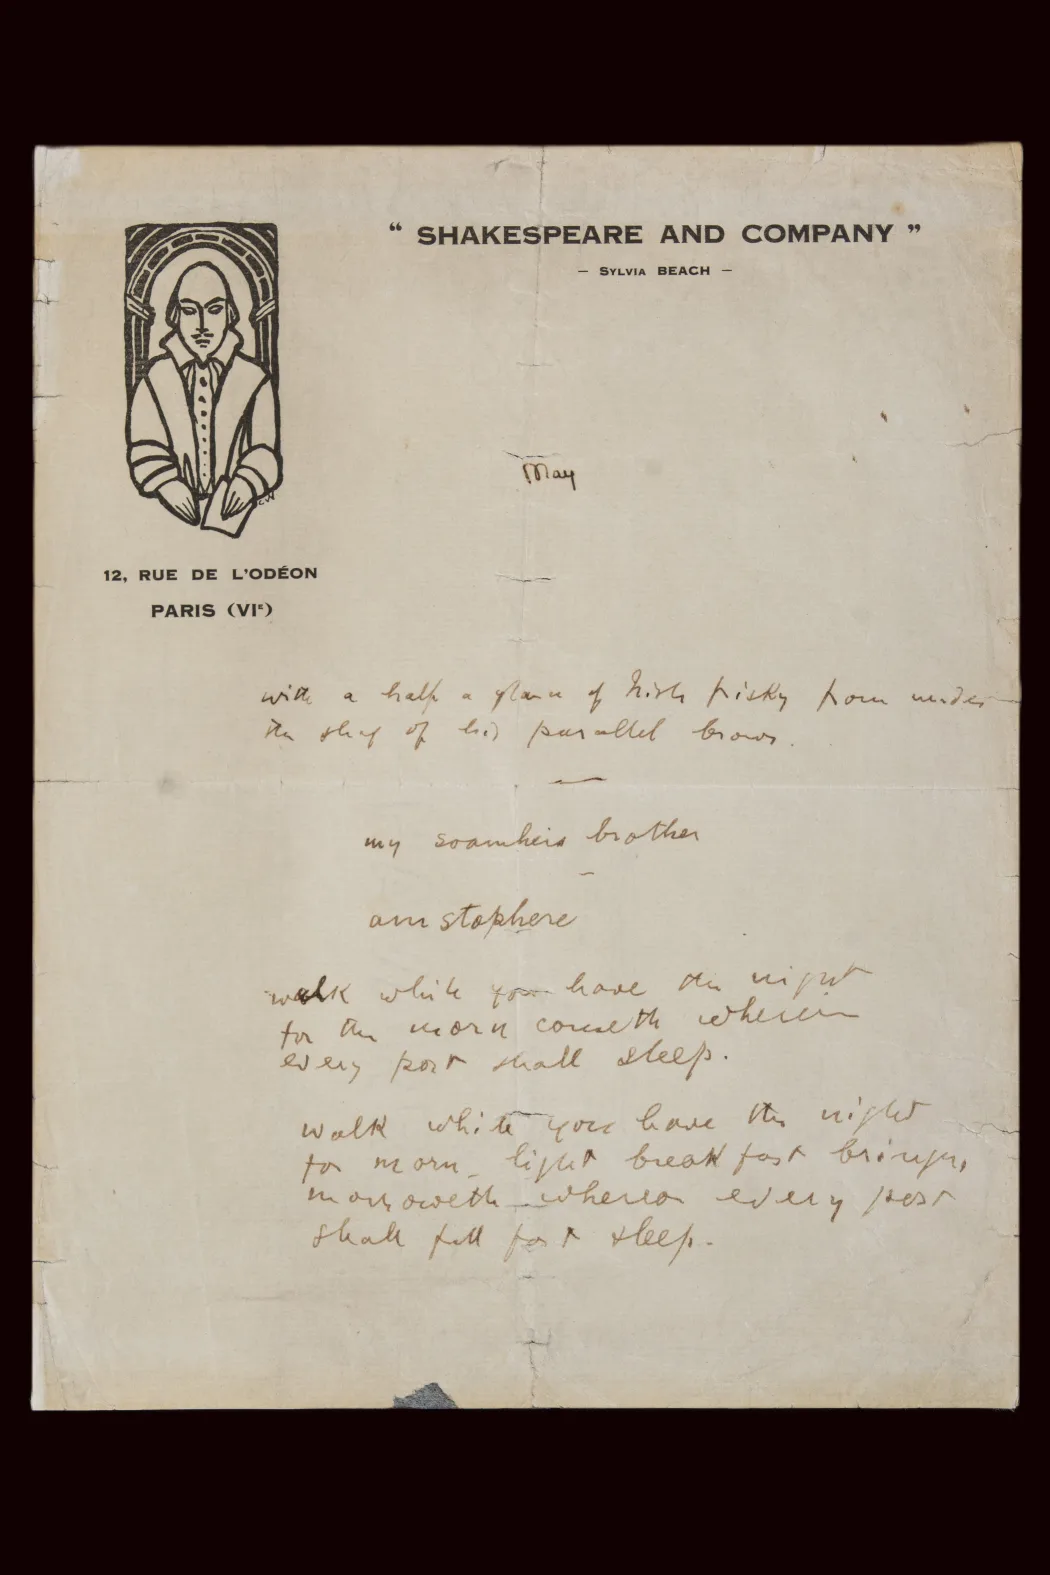 “ SHAKESPEARE AND COMPANY ”
– SYLVIA BEACH –
12, RUE DE L'ODÉON
PARIS (VIᵉ)
May
with a half a glance of Irish frisky from under
the shag of his parallel brows.
my soamheis brother
am stophere
walk while you have the night
for the morn cometh wherein
every past shall sleep.
walk while you have the night
for morn, light breakfast bringer,
morroweth whereon every past
shall full fast sleep.